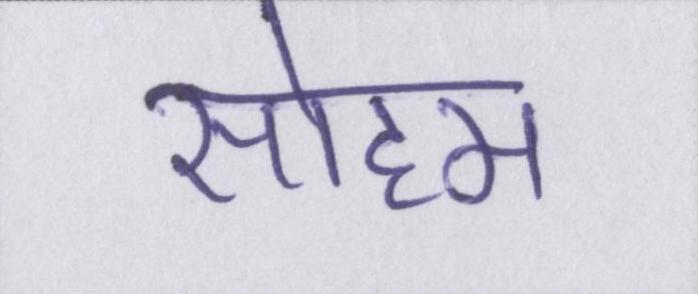 सोहम